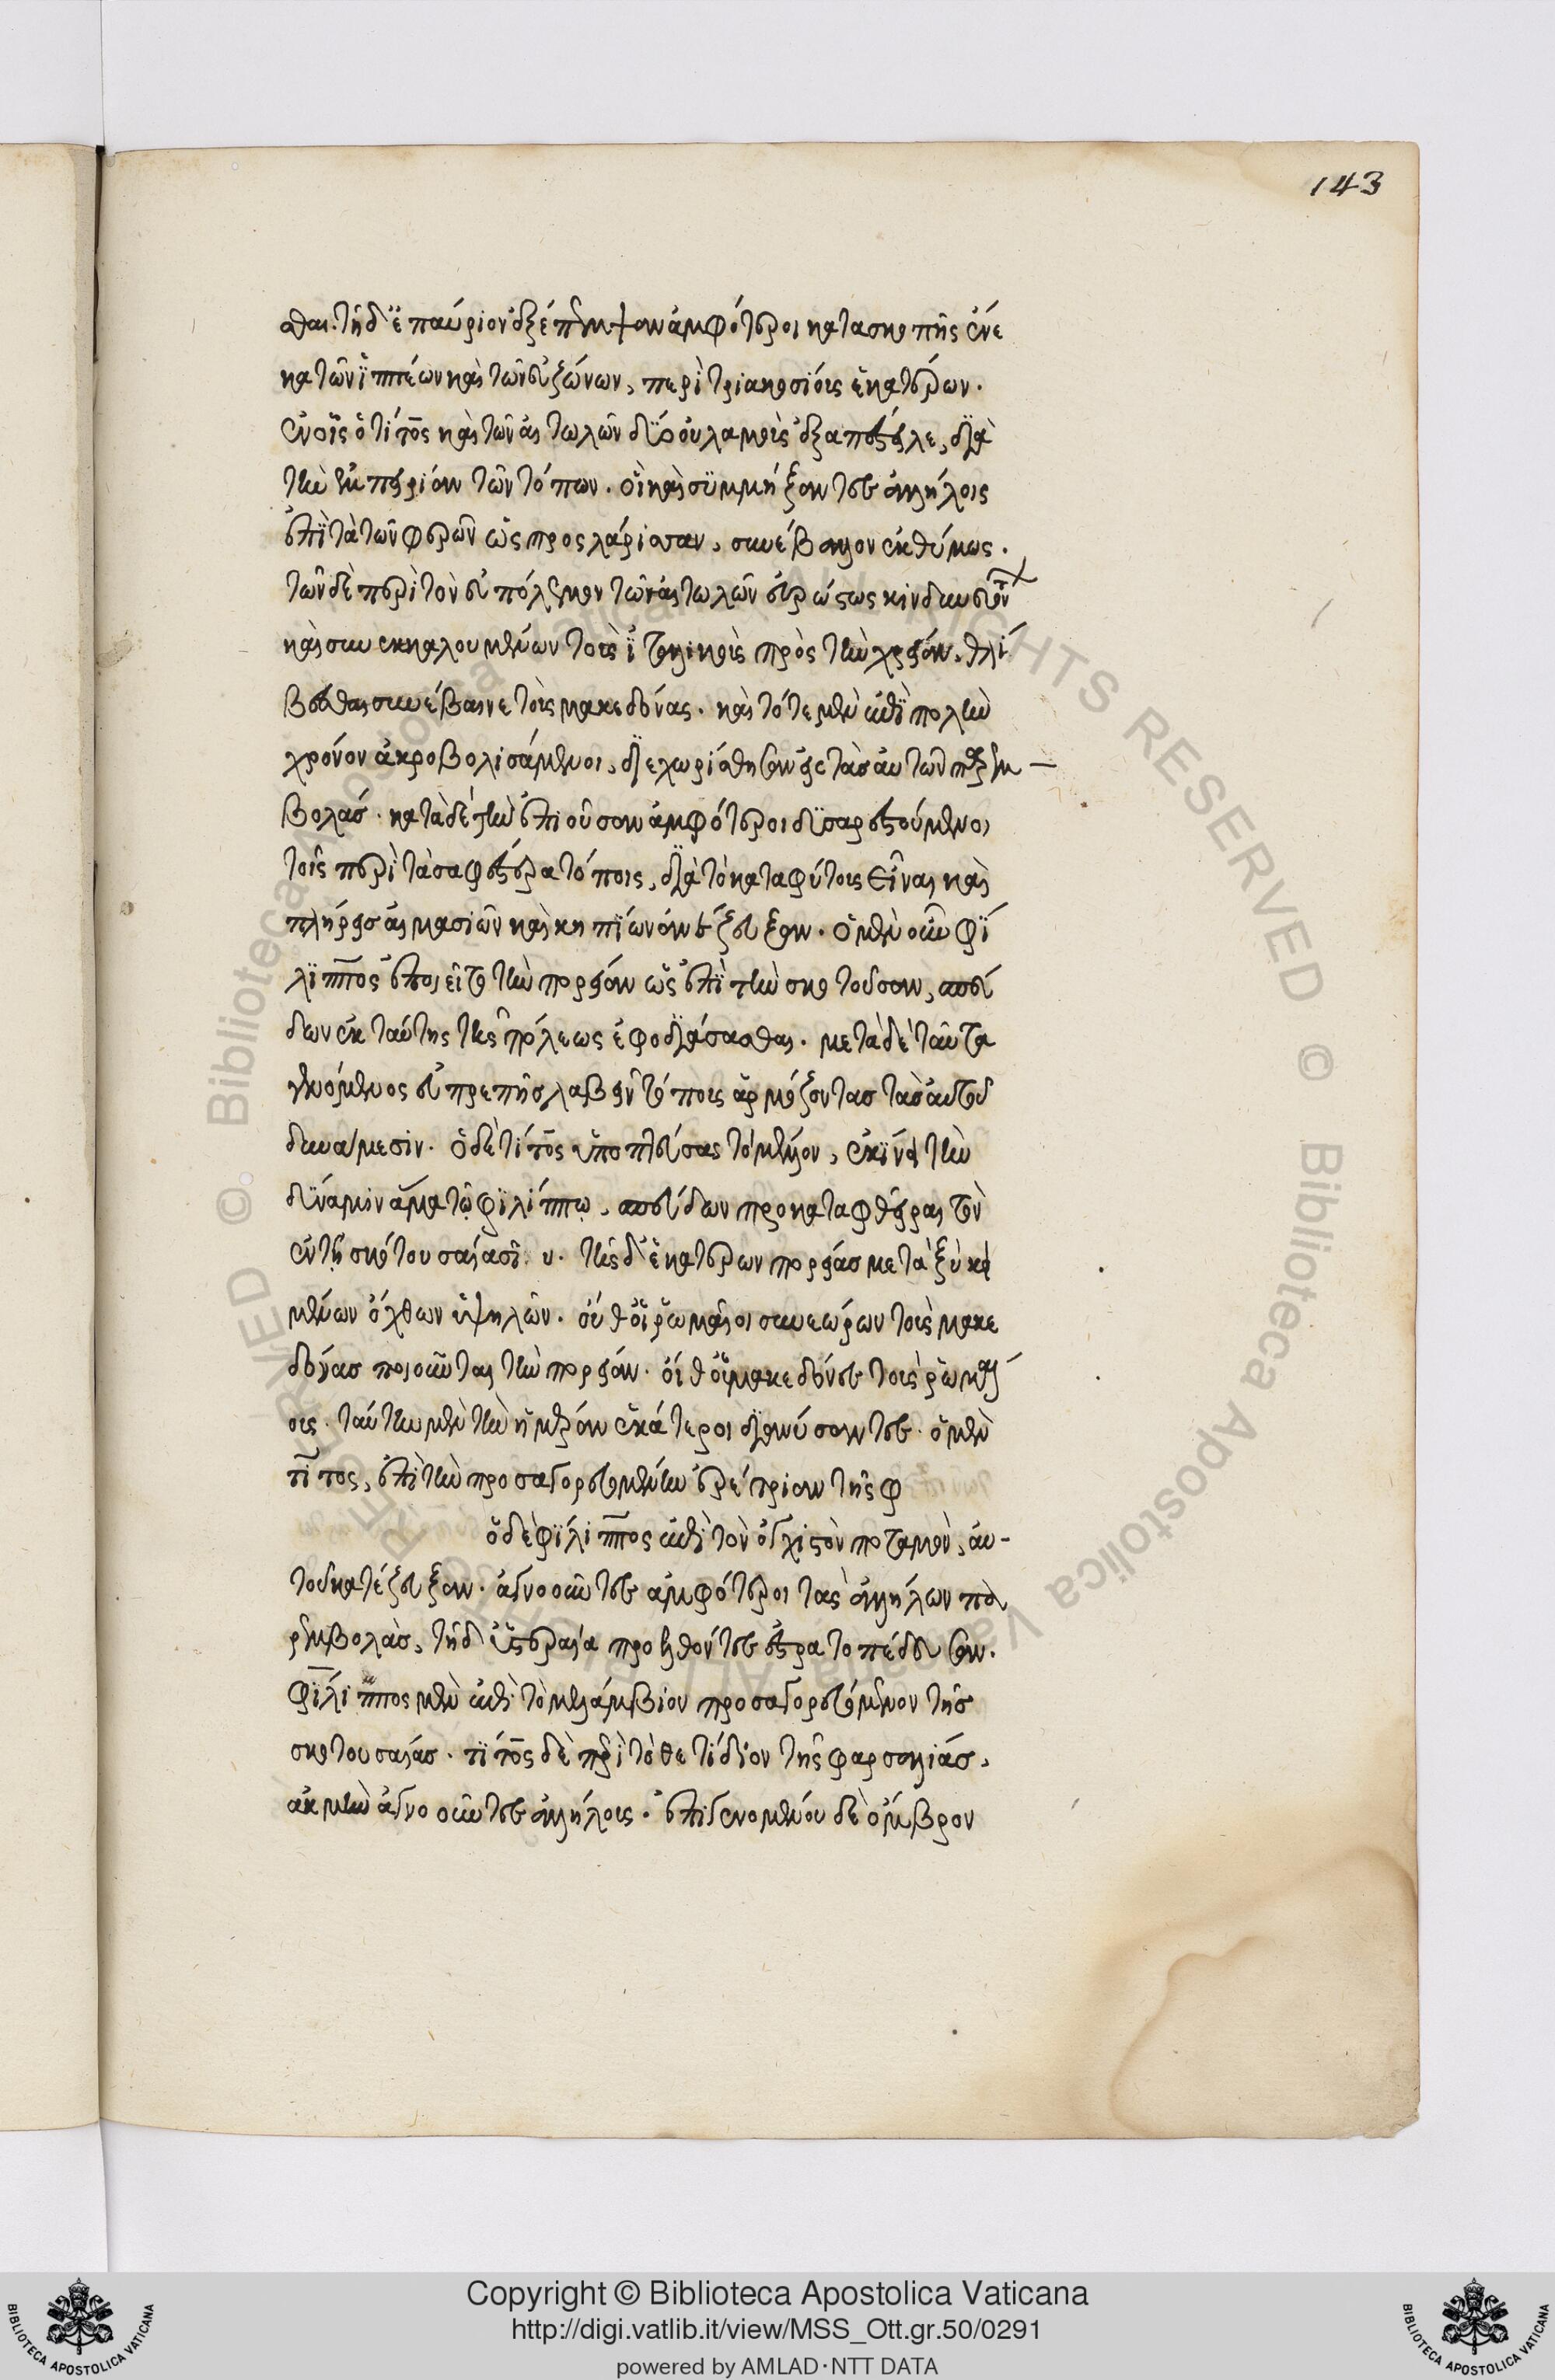 143
σθαι. τῇ δ' ἐπαύριον ἐξέπεμψαν ἀμφότεροι κατασκοπῆς ἕνε
κα τῶν ἱππέων καὶ τῶν εὐζώνων, περὶ τριακοσίους ἑκατέρων.
ἐν οἷς ὁ τίτος καὶ τῶν αἰτωλῶν δύο οὐλαμοὺς ἐξαπέστειλε, διὰ
τὴν ἐμπειρίαν τῶν τόπων. οἳ καὶ συμμίξαντες ἀλλήλοις
ἐπὶ τὰ τῶν φερῶν ὡς προς λάρισσαν, συνέβαλλον ἐκθύμως.
τῶν δὲ περὶ τὸν εὐπόλεμον τῶν αἰτωλῶν εὐρώστως κινδυνευόν
καὶ συνεκκαλουμένων τοὺς ἰταλικοὺς πρὸς τὴν χρείαν, θλί
βεσθαι συνέβαινε τοὺς μακεδόνας. καὶ τότε μὲν ἐπὶ πολὺν
χρόνον ἀκροβολισάμενοι, διεχωρίσθησαν εἰς τὰς αὑτῶν παρεμ
βολάς. κατὰ δὲ τὴν ἐπιοῦσαν ἀμφότεροι δυσαρεστούμενοι
τοῖς περὶ τὰς φερὰς τόποις, διὰ τὸ καταφύτους εἶναι καὶ
πλήρεις αἱμασιῶν καὶ κηπίων ἀνέζευξαν. ὁ μὲν οὖν φί
λιππος ἐποιεῖτο τὴν πορείαν ὡς ἐπὶ τὴν σκοτοῦσαν, σπεύ
δων ἐκ ταύτης τῆς πόλεως ἐφοδιάσασθαι. μετὰ δὲ ταῦτα
γενόμενος εὐπρεπὴς λαβεῖν τόπους ἁρμόζοντας ταῖς αὑτοῦ
δυνάμεσιν. ὁ δὲ τίτος ὑποπτεύσας τὸ μέλλον, ἐκίνει τὴν
δύναμιν ἅμα τῷ φιλίππῳ, σπεύδων προκαταφθεῖραι τὸν
ἐν τῇ σκοτουσαίᾳ σῖτον. τῆς δ' ἑκατέρων πορείας μεταξὺ κει
μένων ὄχθων ὑψηλῶν. οὔθ' οἱ ῥωμαῖοι συνεώρων τοὺς μακε
δόνας ποιοῦνται τὴν πορείαν. οὔθ' οἱ μακεδόνες τοὺς ῥωμαί
ους. ταύτην μὲν τὴν ἡμέραν ἑκάτεροι διανύσαντες. ὁ μὲν
τίτος, ἐπὶ τὴν προσαγορευομένην ἐρέτριαν τῆς φ
ὁ δὲ φίλιππος ἐπὶ τὸν ὀγχιστὸν ποταμὸν, αὐ
τοῦ κατέζευξαν. ἀγνοοῦντες ἀμφότεροι τὰς ἀλλήλων πα
ρεμβολὰς, τῇ δ' ὑστεραίᾳ προελθόντες ἐστρατοπέδευσαν.
φίλιππος μὲν ἐπὶ τὸ μελάμβιον προσαγορευόμενον τῆς
σκοτουσαίας. τίτος δὲ περὶ τὸ θετίδιον τῆς φαρσαλίας,
ἀκμὴν ἀγνοοῦντες ἀλλήλους. ἐπιγενομένου δὲ ὄμβρον
Copyright © Biblioteca Apostolica Vaticana
http://digi.vatlib.it/view/MSS_Ott.gr.50/0291
powered by AMLAD·NTT DATA